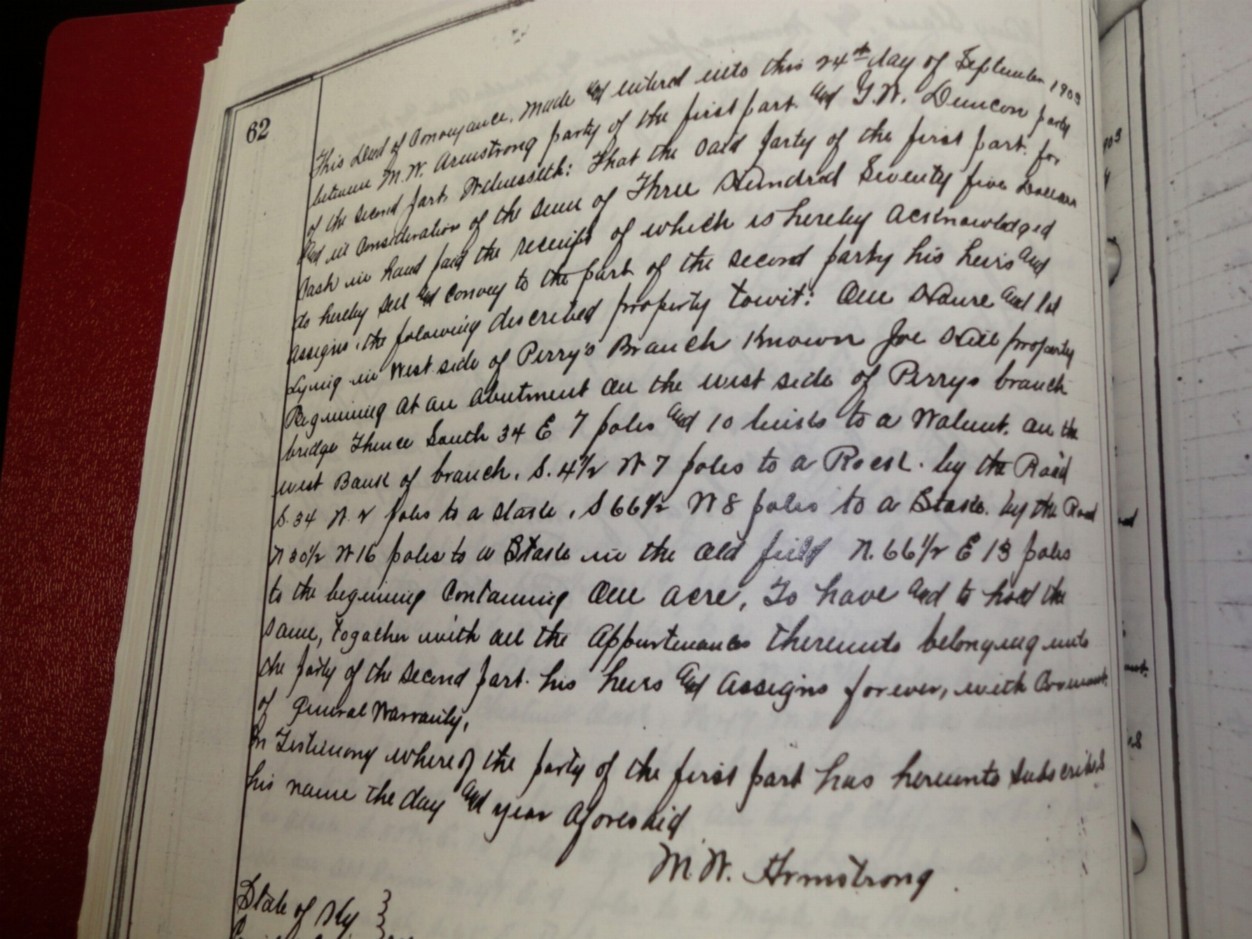 62
This Deed of Conveyance, Made and entered into this 24th day of September 1903
between M.W. Armstrong party of the first part and G.W. Duncon party
of the second part. Witnesseth: That the said party of the first part. for
and in Consideration of the sum of Three Hundred Seventy five Dollars
Cash in hand paid the receipt of which is hereby acknowledged
do hereby sell and Convey to the part of the second party his heirs and
assigns, the following described property towit: One House and lot
Lying in West side of Perry's Branch Known Joe Hill property
Beginning at an abutment on the west side of Perrys branch
bridge Thence South 34 E 7 poles and 10 links to a Walnut. on the
west Bank of branch. S. 4½ W 7 poles to a Rock. by the Road
S. 34 W. 2 poles to a stake, S 66½ W 8 poles to a Stake. by the Road
N 30½ W 16 poles to a Stake in the old field N. 66½ E 13 poles
to the beginning Containing One acre, To have and to hold the
same, togather with all the appurtenances thereunto belonging unto
the party of the second part. his heirs and assigns forever, with Covenant
of General Warranty.
In Testimony whereof the party of the first part has hereunto subscribed
his name the day and year aforesaid
M.W. Armstrong.
State of Ky }